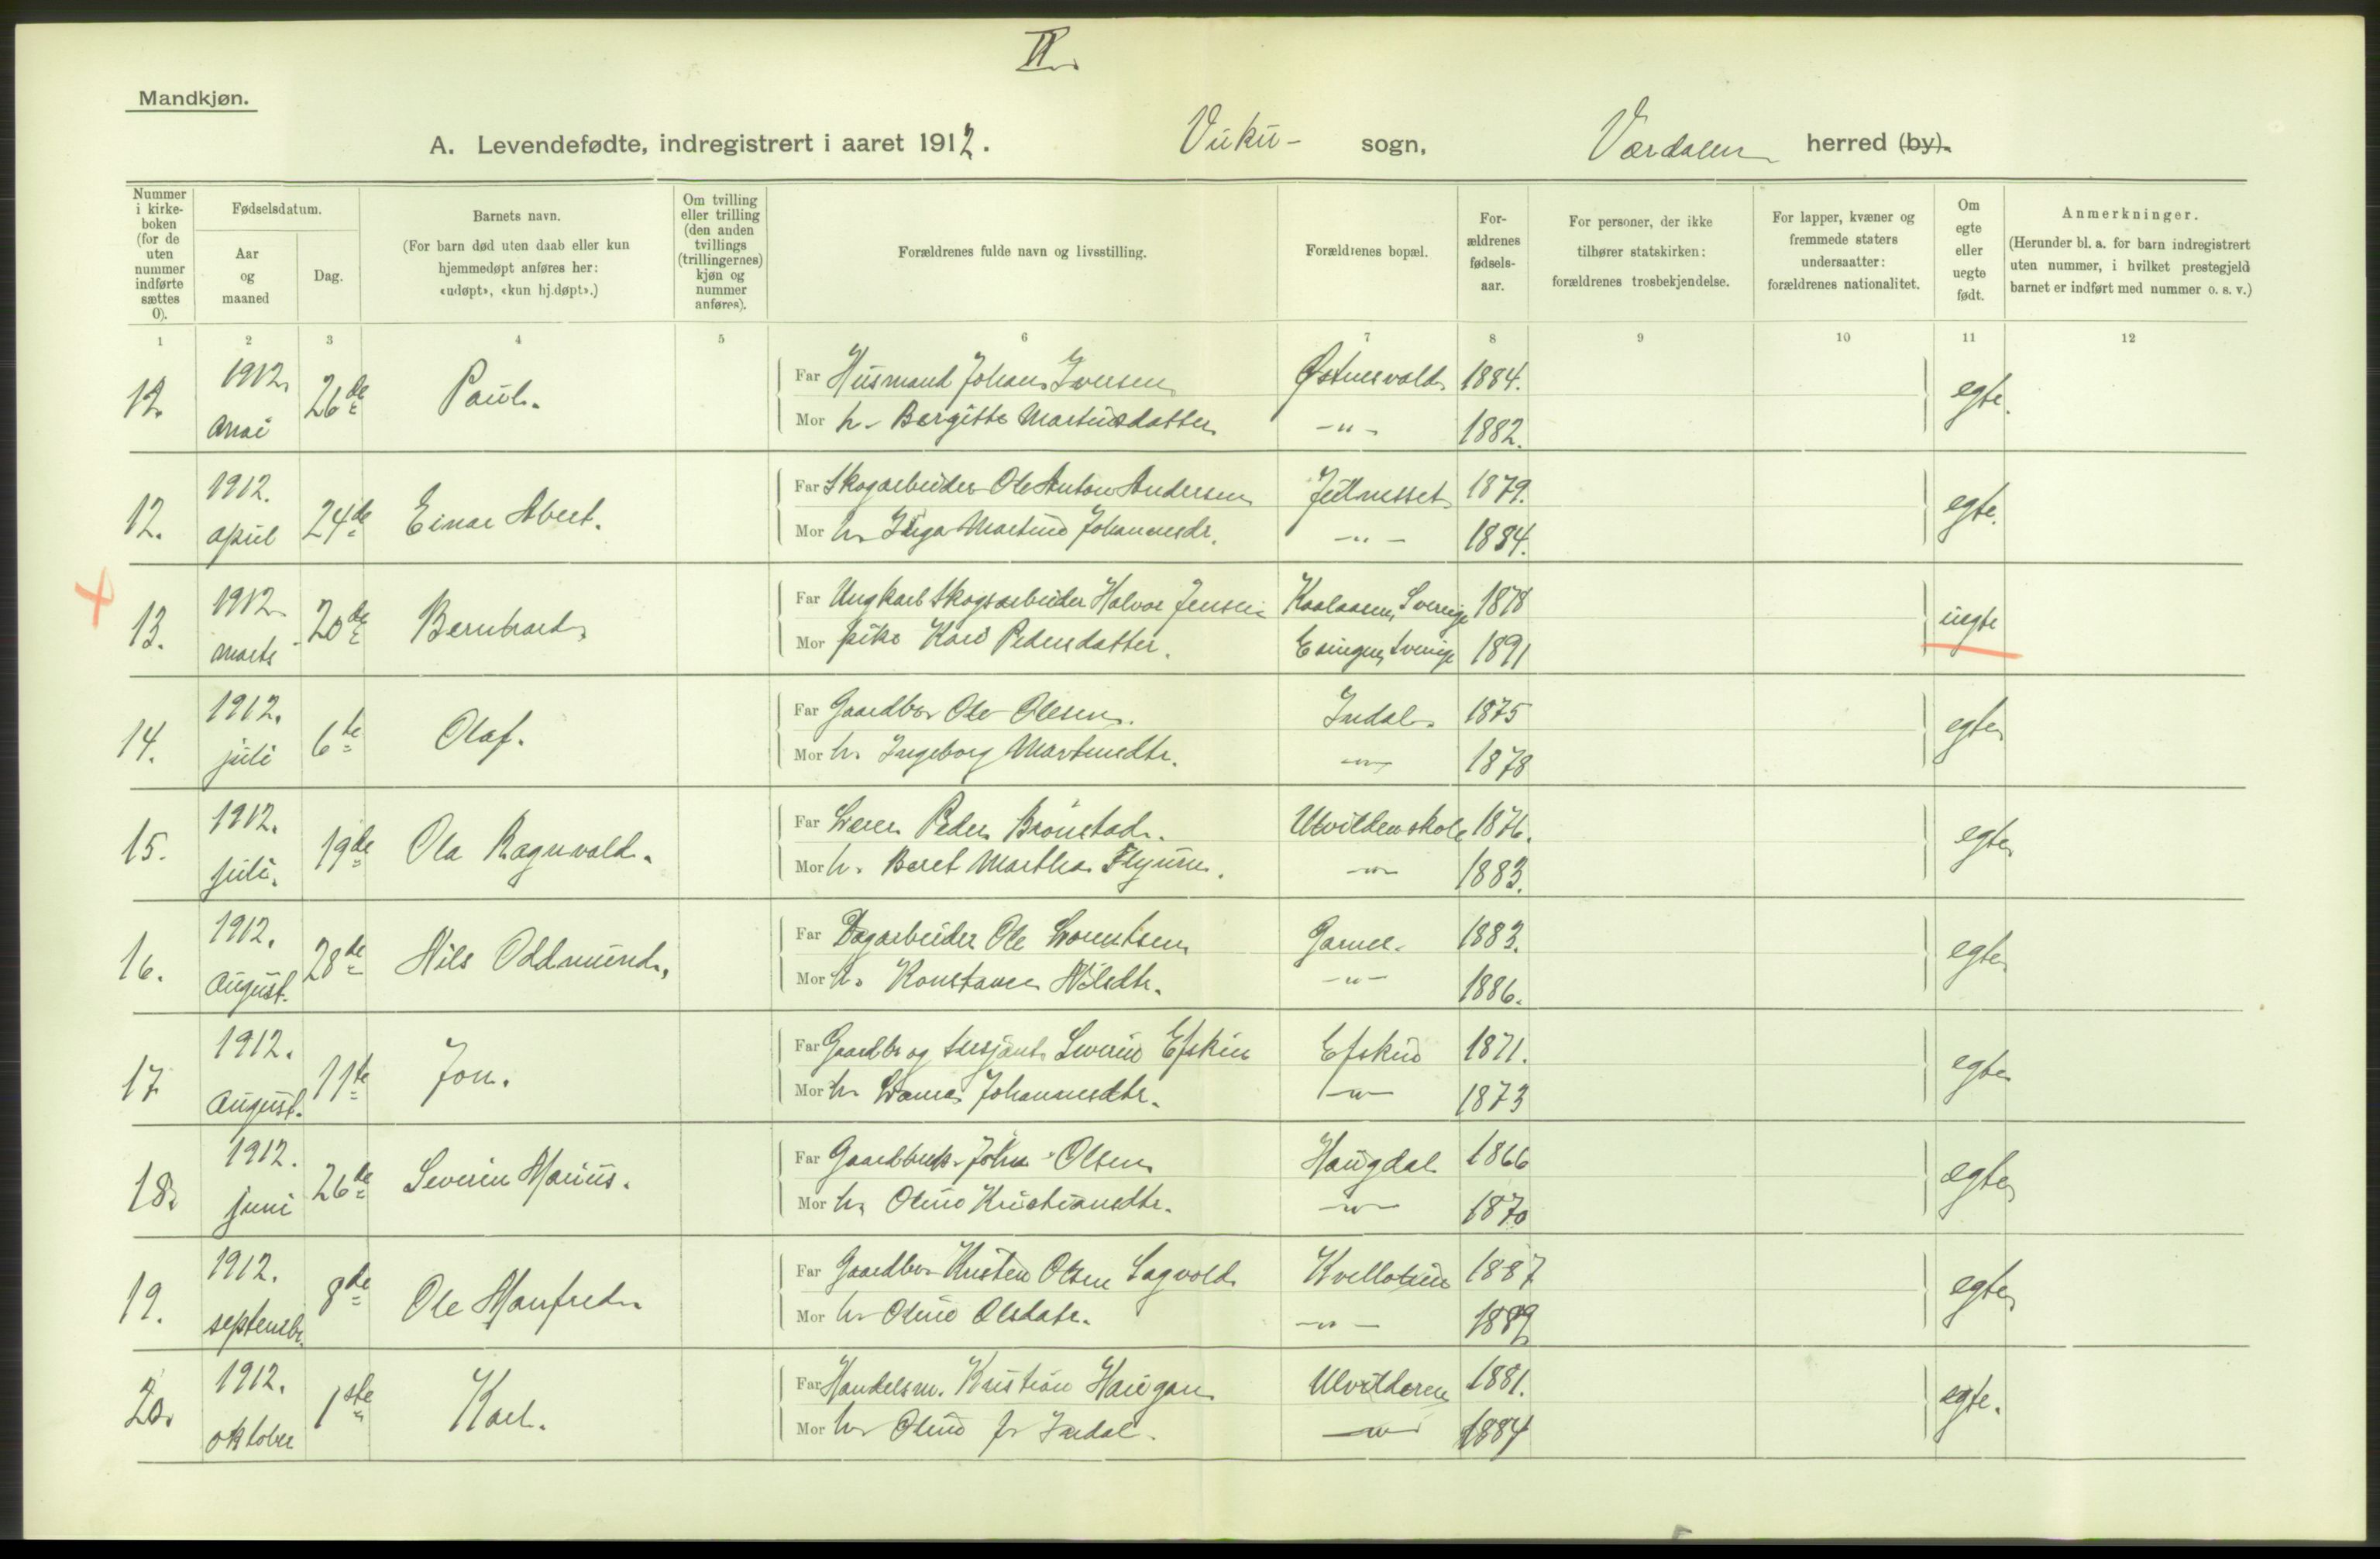 II.
Mandkjøn.
A. Levendefødte, indregistrert i aaret 1912. Vuku - sogn, Værdalen herred (by).
Nummer i kirke-boken (for de uten nummer indførte sættes 0).
Fødselsdatum.
Aar og maaned
Dag.
Barnets navn.
(For barn død uten daab eller kun hjemmedøpt anføres her: «udøpt», «kun hj.døpt».)
Om tvilling eller trilling (den anden tvillings (trillingernes) kjøn og nummer anføres).
Forældrenes fulde navn og livsstilling.
Forældrenes bopæl.
For-ældrenes fødsels-aar.
For personer, der ikke tilhører statskirken: forældrenes trosbekjendelse.
For lapper, kvæner og fremmede staters undersaatter: forældrenes nationalitet.
Om egte eller uegte født.
Anmerkninger.
(Herunder bl. a. for barn indregistrert uten nummer, i hvilket prestegjeld barnet er indført med nummer o. s. v.)
1 2 3 4 5 6 7 8 9 10 11 12
1912. Far Husmand Johan Iversen 1884.
26de Paul. egte.
mai Mor h. Bergitte Martinsdatter -"- 1882.
1912. Far Skogarbeider Ole Anton Andersen 1879.
12. 24de Einar Abert. egte.
april Mor h. Inga Martine Johannesdr. -"- 1884.
1912 Far Ungkarl Skogsarbeider Halvor Jensen Sverige 1878
13. 20de Bernhard. uegte
marts Mor pike Kari Pedersdatter. Sverige 1891
1912. Far Gaardbr. Ole Olesen. Indal. 1875
14. 6te Olaf. egte
juli Mor h. Ingeborg Martinsdtr. -"- 1878
1912. Far Lærer Peder Brønstad. Ulvilden skole 1876.
15. 19de Ola Ragnvald. egte
juli. Mor h. Beret Martha -"- 1883.
1912. Far Dagarbeider Ole Lorentsen Garnes. 1883.
16. 28de Nils Oddmund. egte
August. Mor h. Konstance Nilsdtr. -"- 1886.
1912. Far Gaardbr og Sersjant Severin Efskin Efskin 1871.
17 11te Jon. egte
August. Mor h. Johannesdtr. -"- 1873
1912. Far Gaardbruk. Johan Olsen Haugdal 1866
18. 26de Severin Marius. egte
juni Mor h. Oline Kristiansdtr. -"- 1870
1912. Far Gaardbr. Kristen Olsen Sagvold 1887
19. 8de Ole Manfred. egte
septembr. Mor h. Oline Olsdatr. -"- 1889
1912. Far Handelsm. Kristian Haugan Ulvilderen 1881.
20. 1ste Karl. egte.
oktober Mor h. Oline f. Indal. -"- 1884